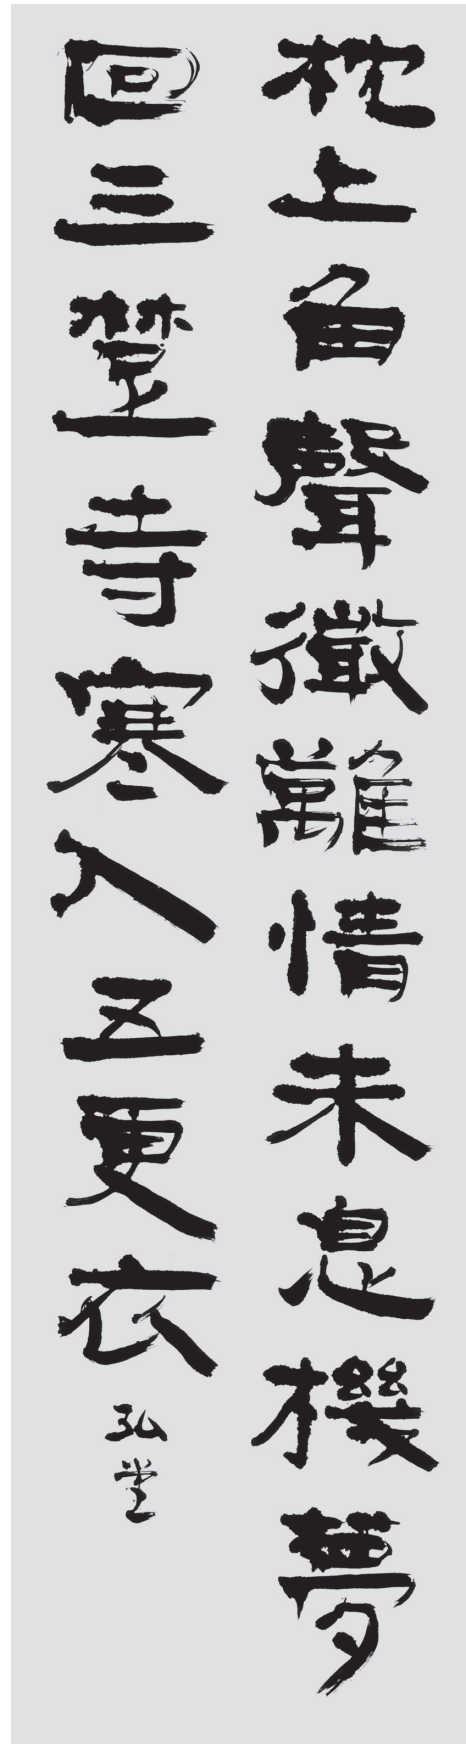 枕上角聲微離情未息機夢
回三楚寺寒入五更衣
弘堂